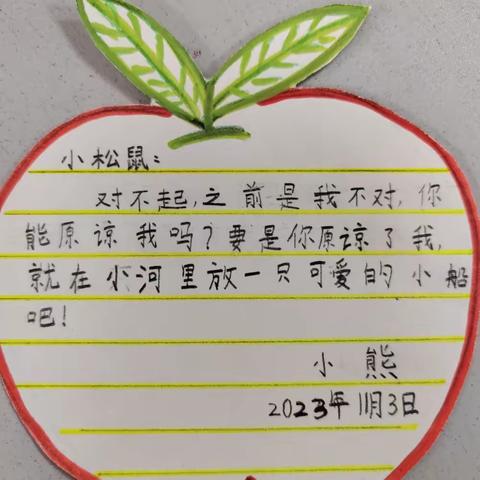 小松鼠：
对不起，之前是我不对，你
能原谅我吗？要是你原谅了我，
就在小河里放一只可爱的小船
吧！
小熊
2023年11月3日